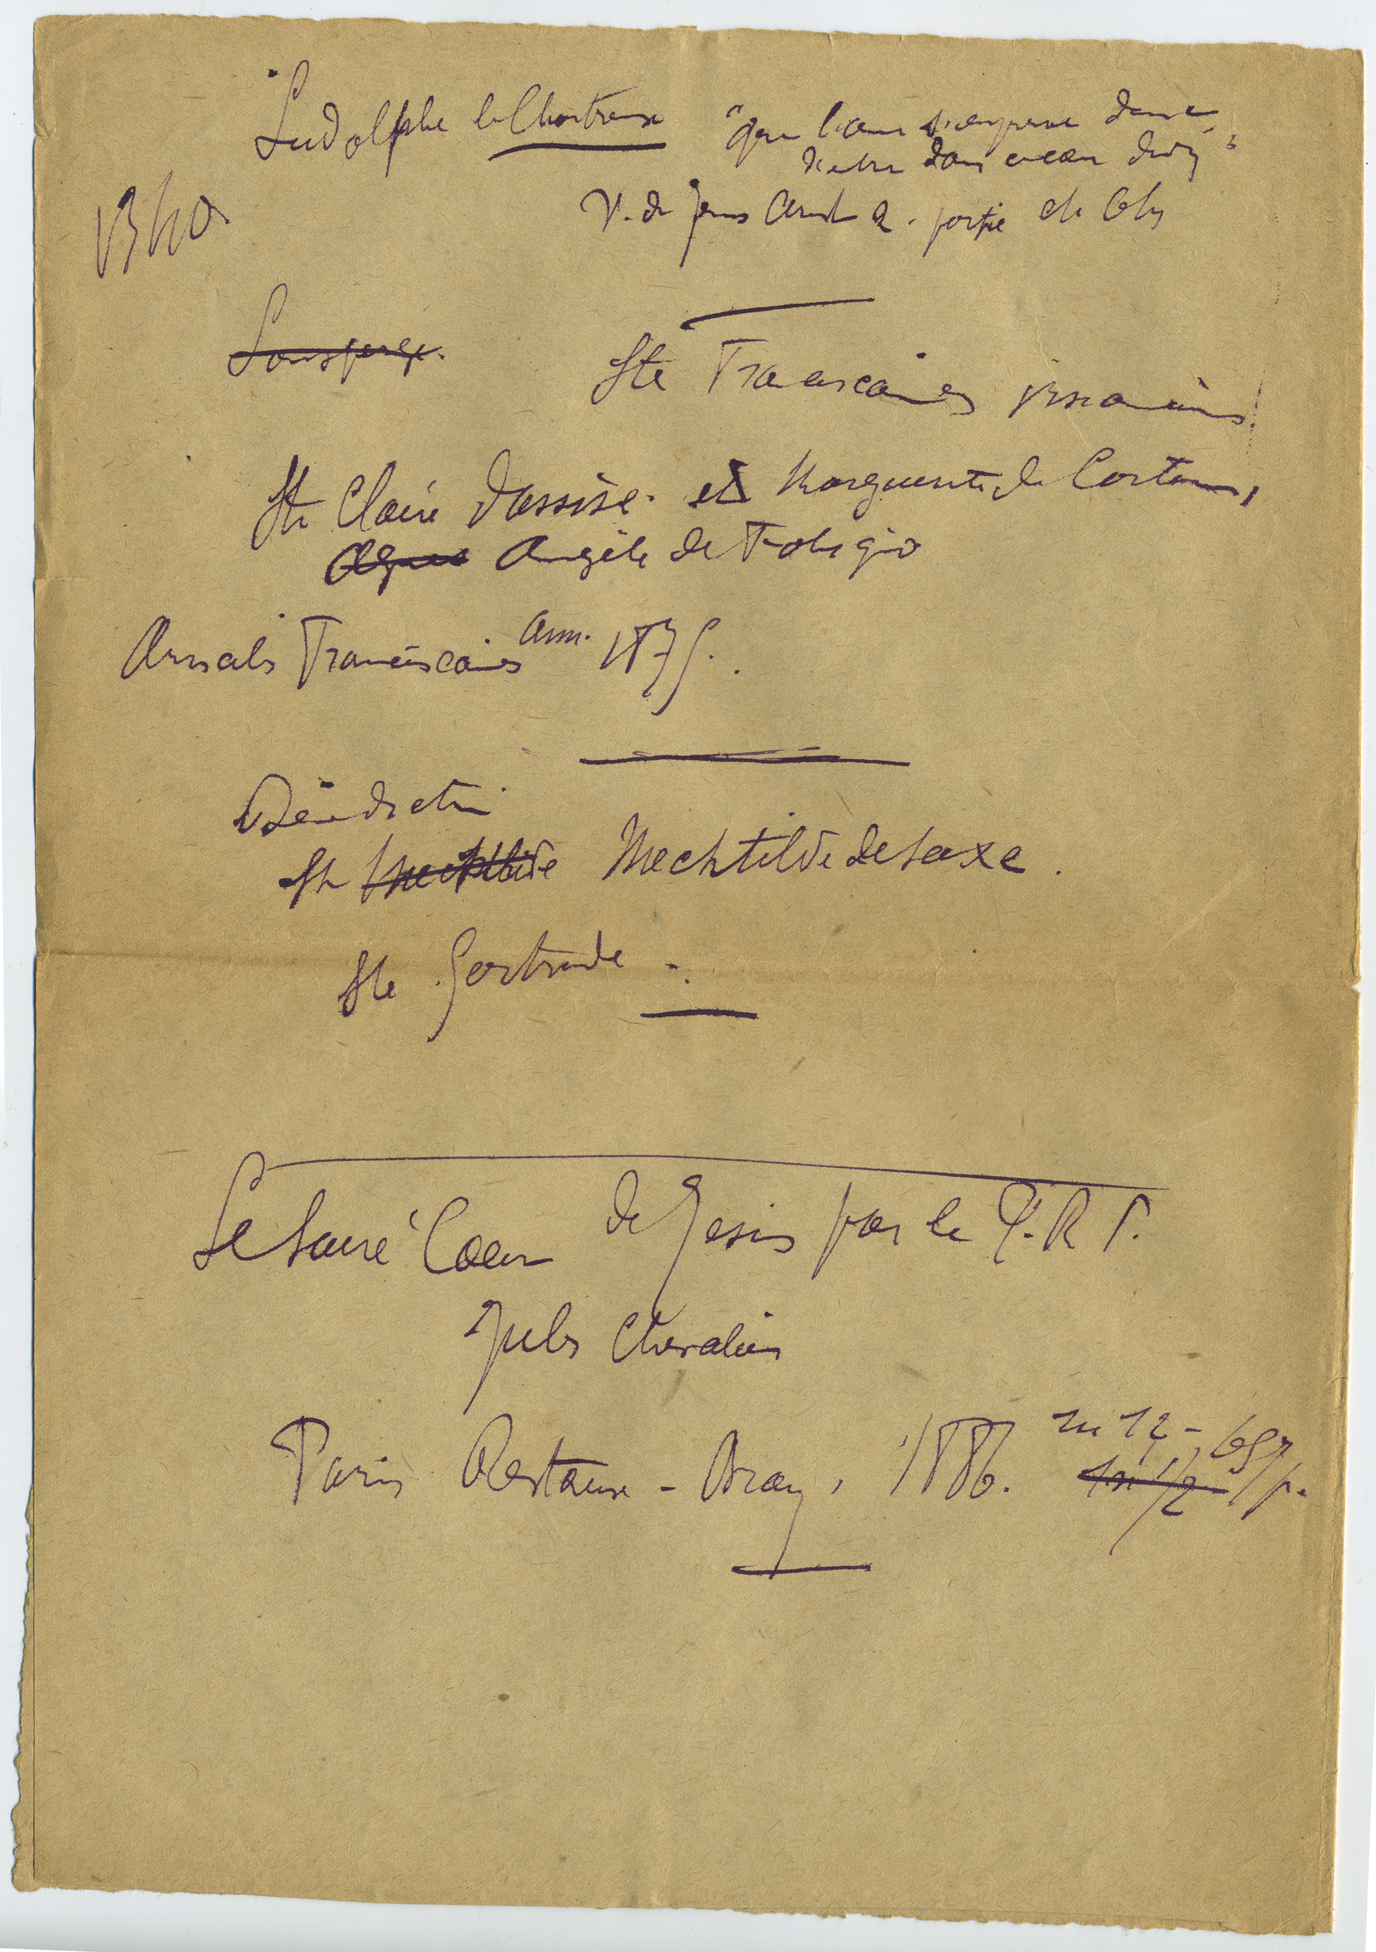 Ludolphe le Chartreux
"que l'ame s'empresse donc
d'entrer dans ce cœur divin"
V. de Jésus Christ 2. partie ch 64
1340
Lansperge.
Ste Franciscaines
Ste Claire d'assise. et Marguerite de Cortone,
Agnes Angèle de Foligio
Annales Franciscaines ann. 1875.
Bénédictin
Ste Mechtilde Mechtilde de Saxe.
Ste Gertrude.
Le Sacré Cœur de Jésus par le T. R. P.
Jules Chevalier
Paris Retaux-Bray, 1886. in 12-
in 12